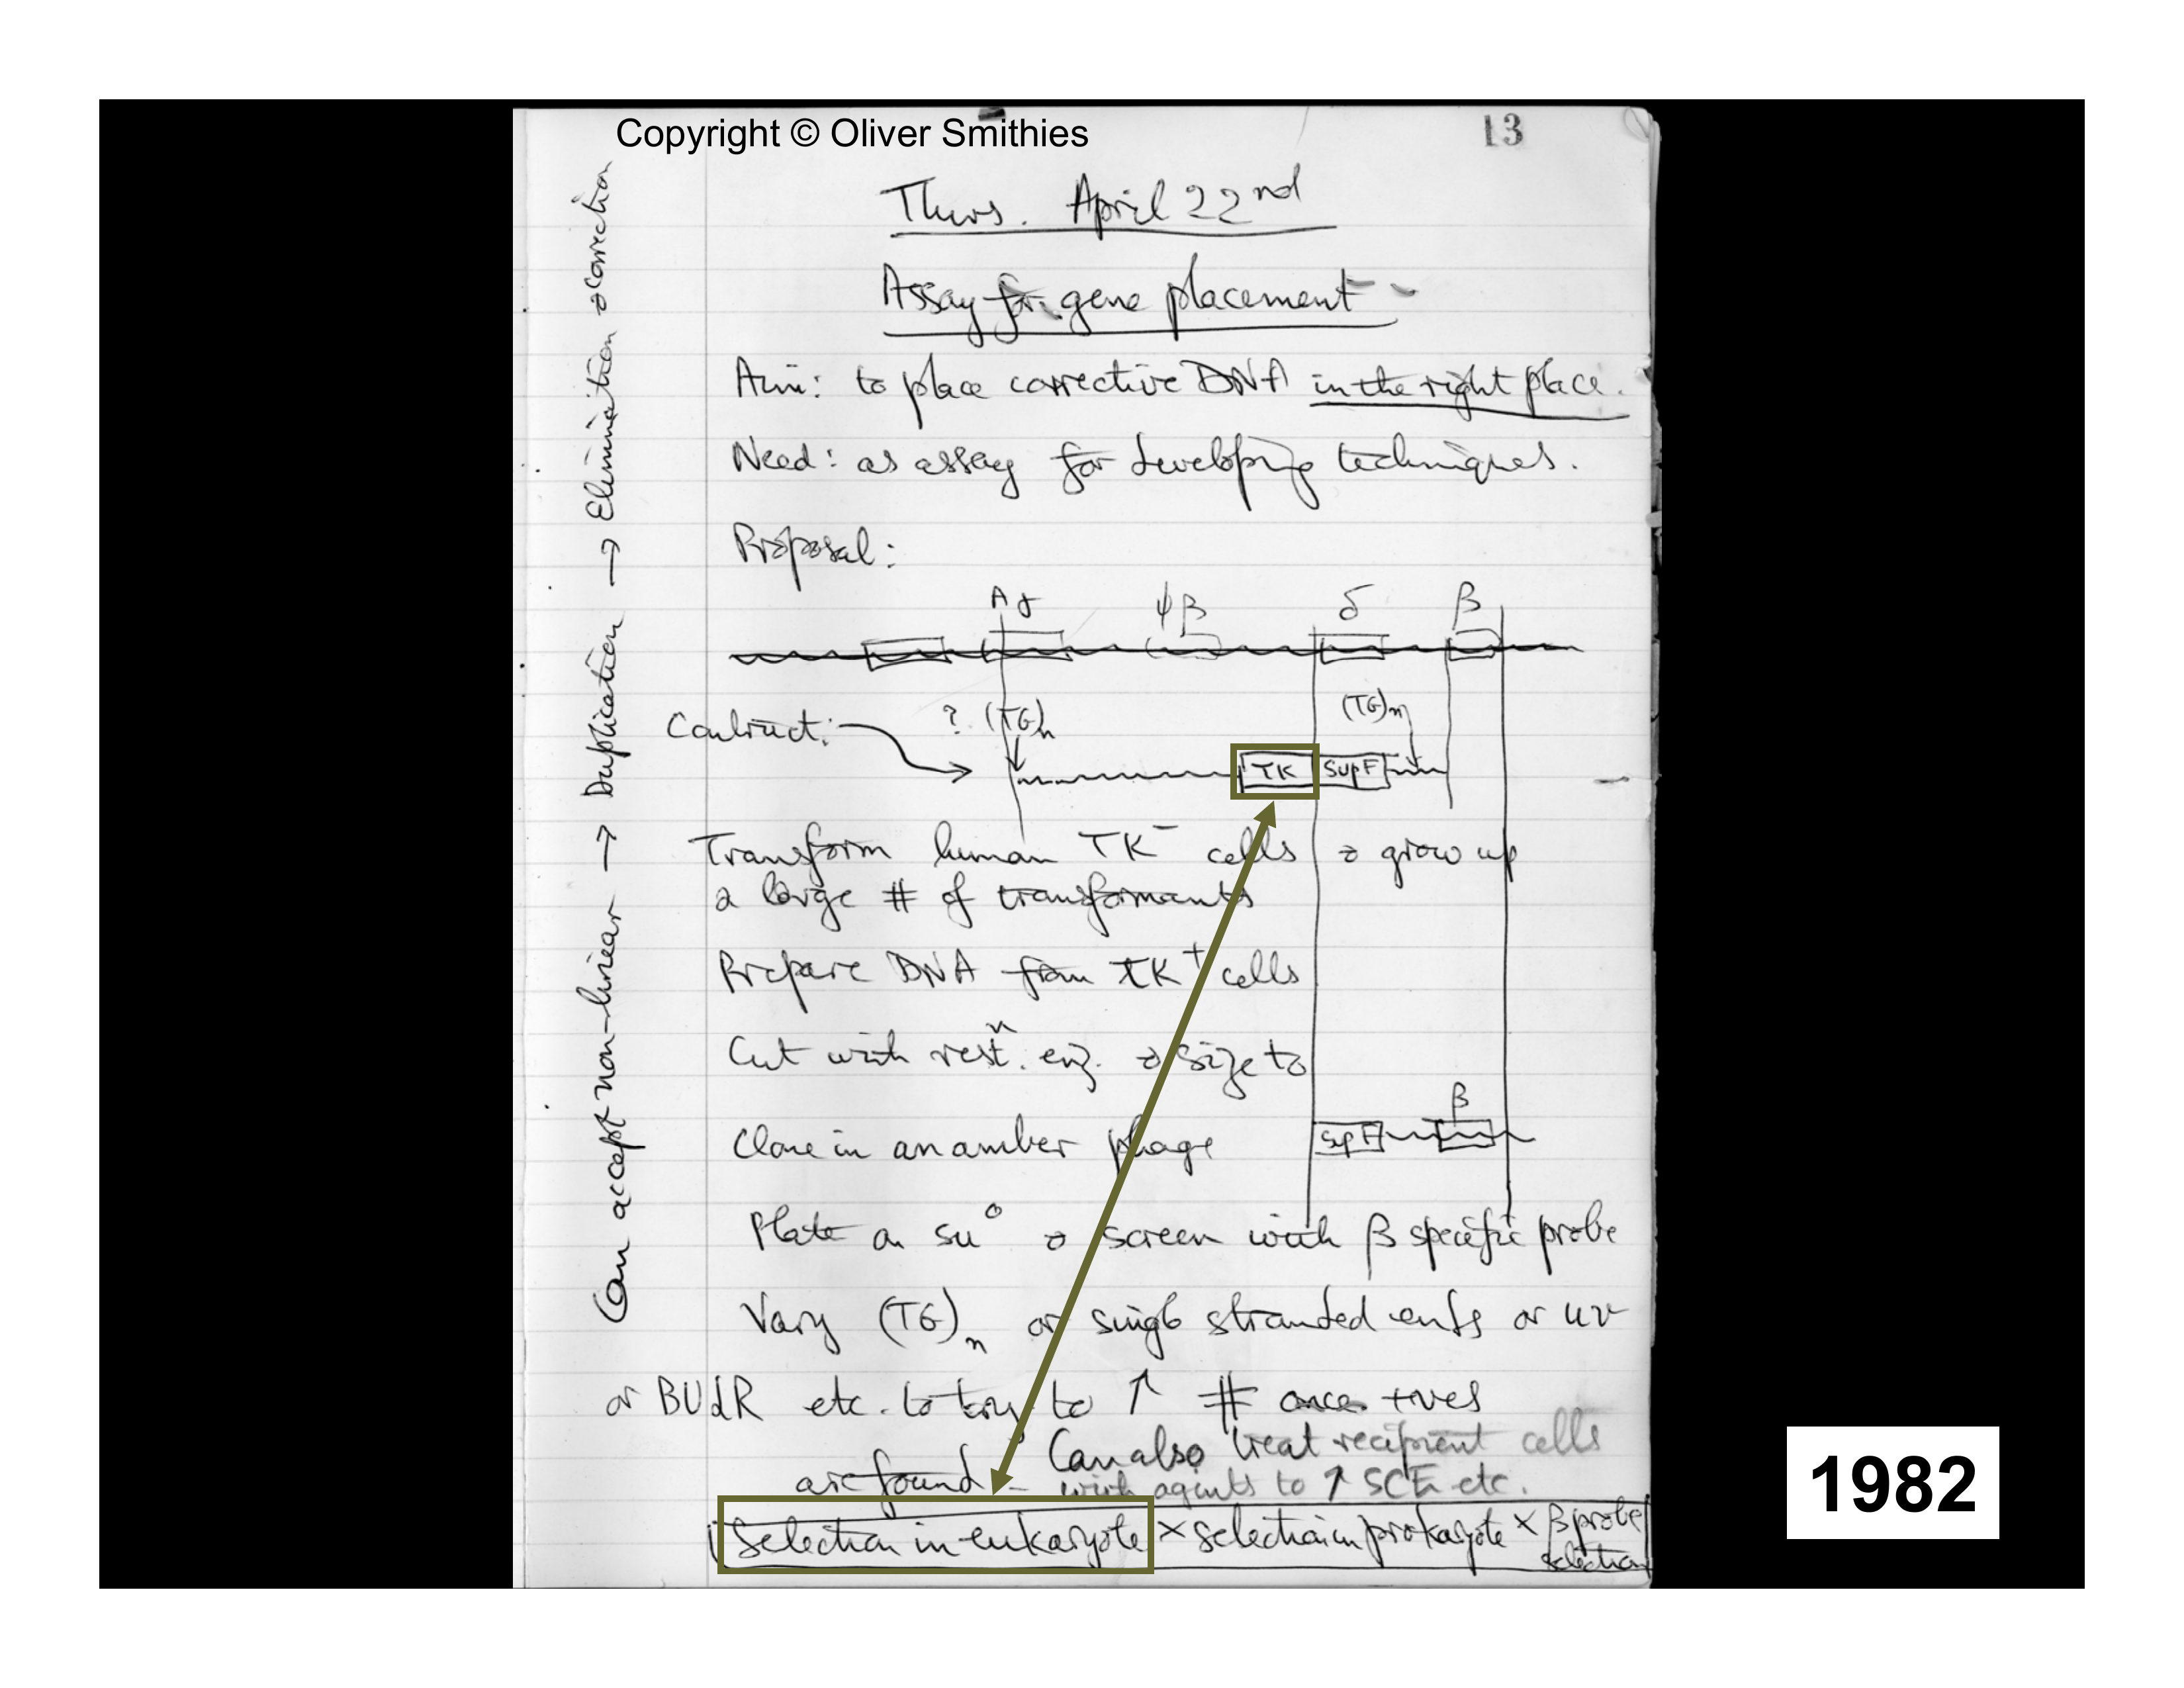 Copyright © Oliver Smithies
13
Thurs. April 22nd
Assay for gene placement
Aim: to place corrective DNA in the right place.
Need: as assay for developing techniques.
Proposal:
Aγ ψβ δ β
Construct: ? (TG)n (TG)n
TK SupF
Transform human TK- cells & grow up
a large # of transformants
Prepare DNA from TK+ cells
Cut with restn. enz. & size to
β
Clone in an amber phage SupF
Plate on su° & screen with β specific probe
Vary (TG)n or single stranded ends or uv
or BUdR etc. to try to ↑ # once +ves
are found - Can also treat recipient cells
with agents to ↑ SCE etc.
Selection in eukaryote × selection in prokaryote × β probe
selection
Can accept non-linear → Duplication → Elimination & correction
1982